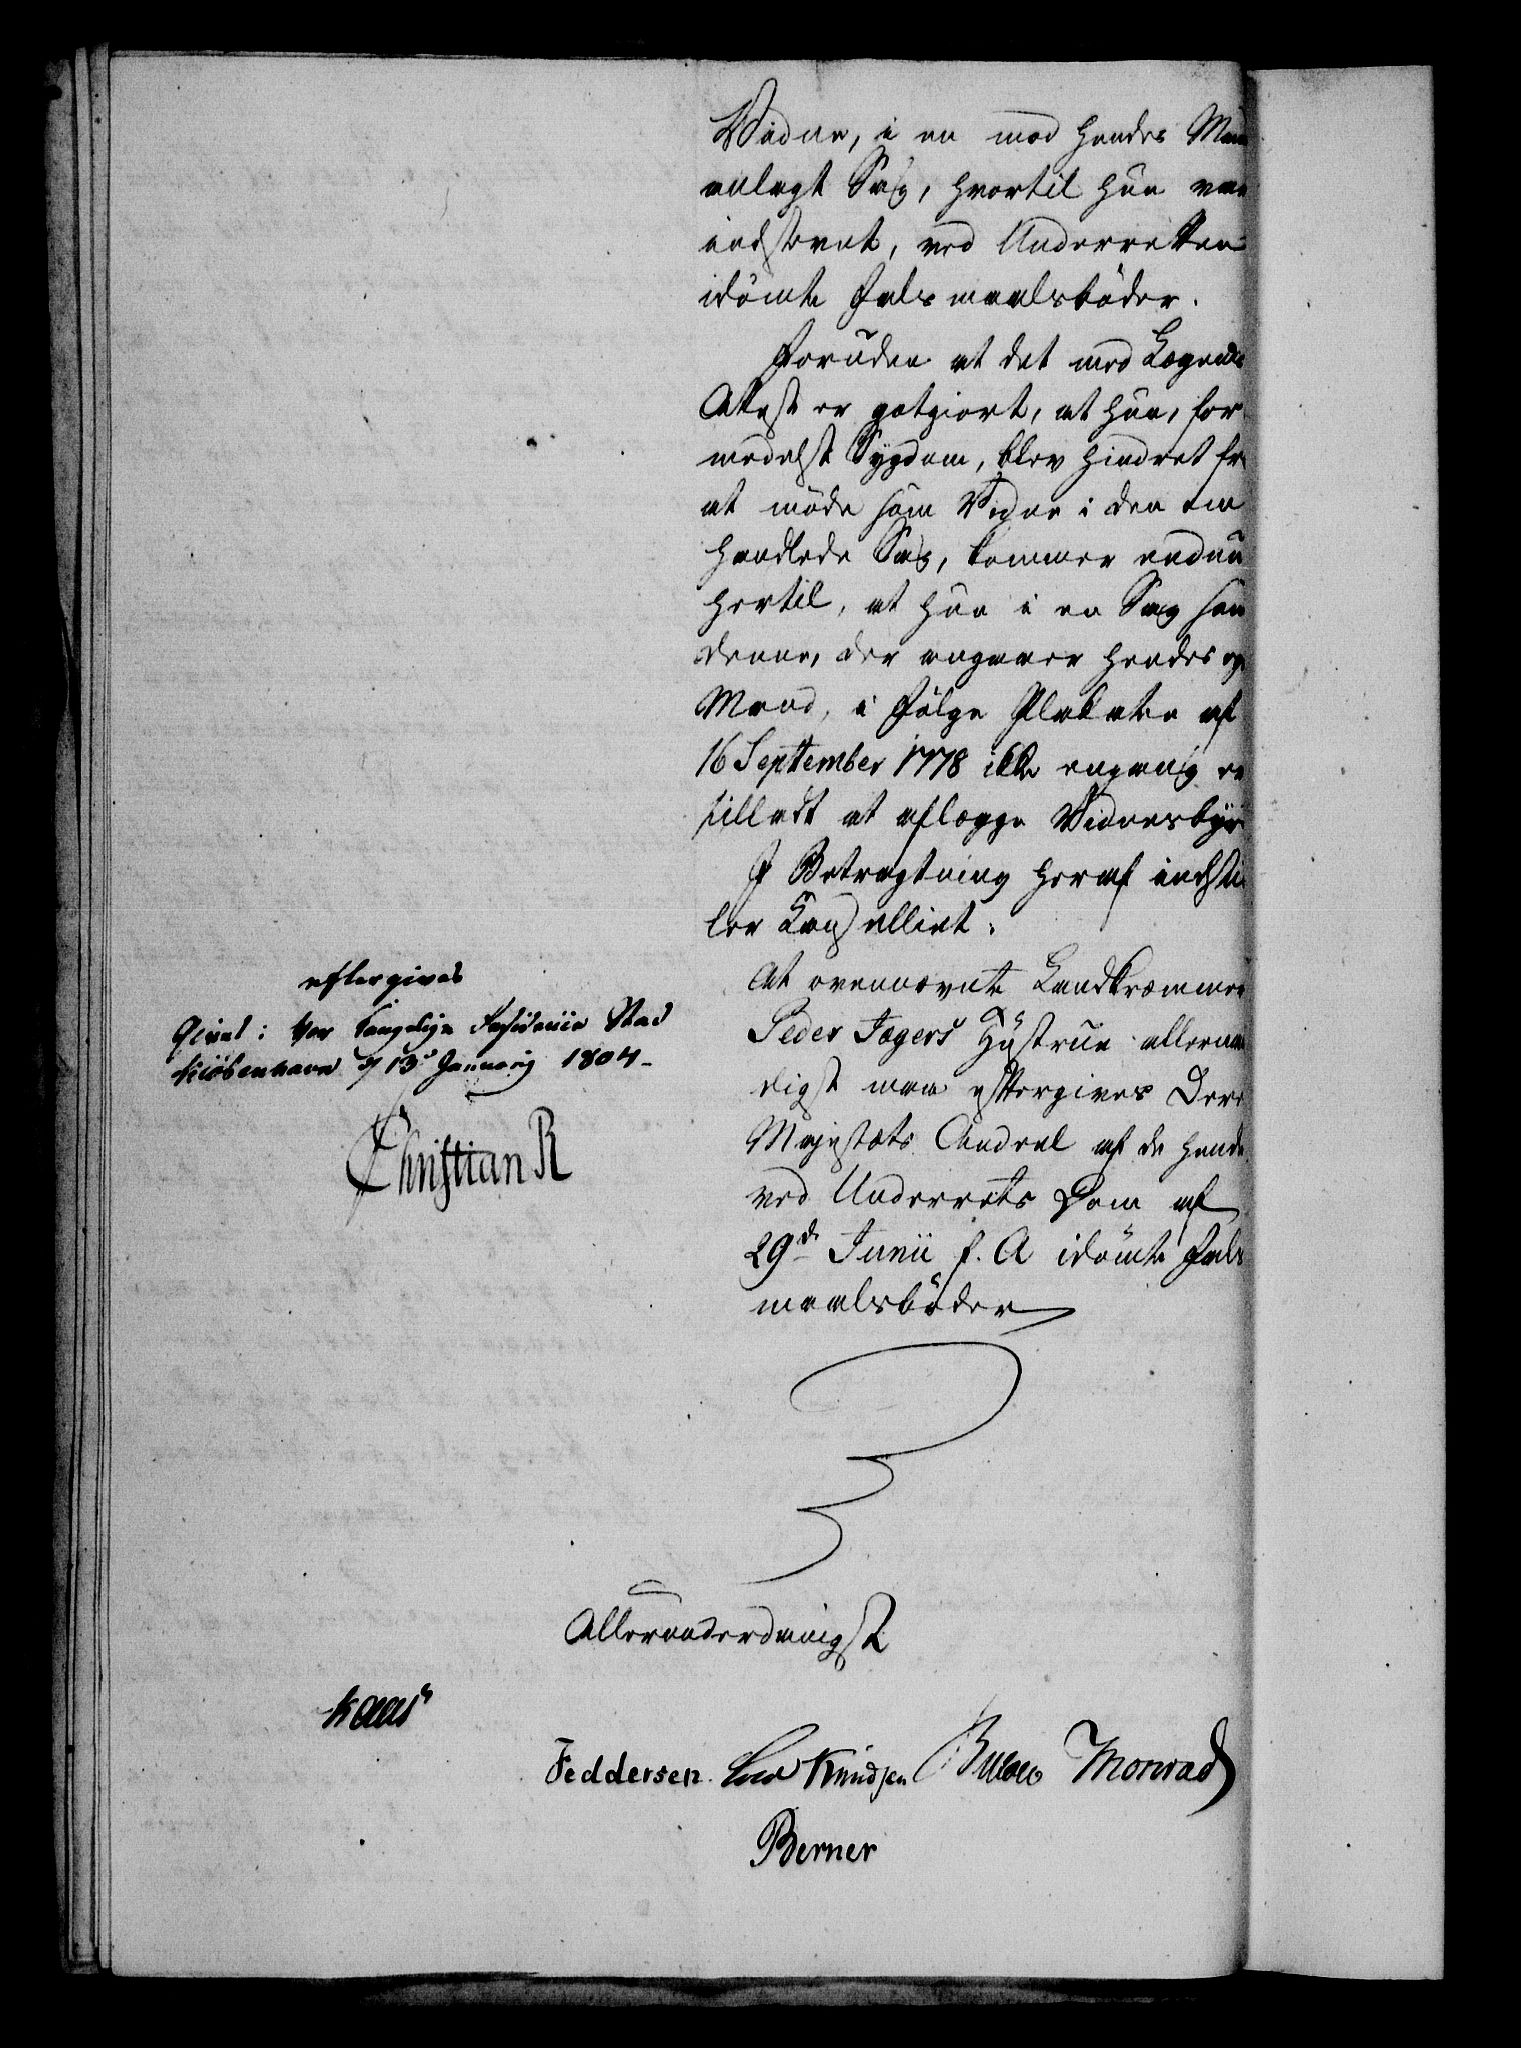 Vidne, i en mod hendes Mand
anlagt Sag, hvortil hun var
indstevnt, ved Underretten
idömte Falsmaalsböder.
Foruden at det med Lægens
Attest er gotgiort, at hun, for-
medelst Sygdom, blev hindret fra
at möde som Vidne i den om
handlede Sag, kommer endnu
hertil, at hun i en Sag som
denne, der angaaer hendes egen
Mand, i Fölge Plakaten af
16 September 1778 ikke engang er
tilladt at aflægge Vidnesbyrd
I Betragtning heraf indstil-
ler Kancelliet:
At ovennævnte Landkræmmer
Peder Jægers Hüstrue allernaa-
digst maa eftergives Deres
Majestæts Andeel af de hende
ved Underrets Dom af
29de Junii f. A idömte Fals-
maalsböder
eftergives
Givet i Vor Kongelige Residence Stad
Kiöbenhavn d 13de Januarij 1804
Christian R
Allerunderdanigst
Kaas
Feddersen. Knudsen Bülow Monrad
Berner